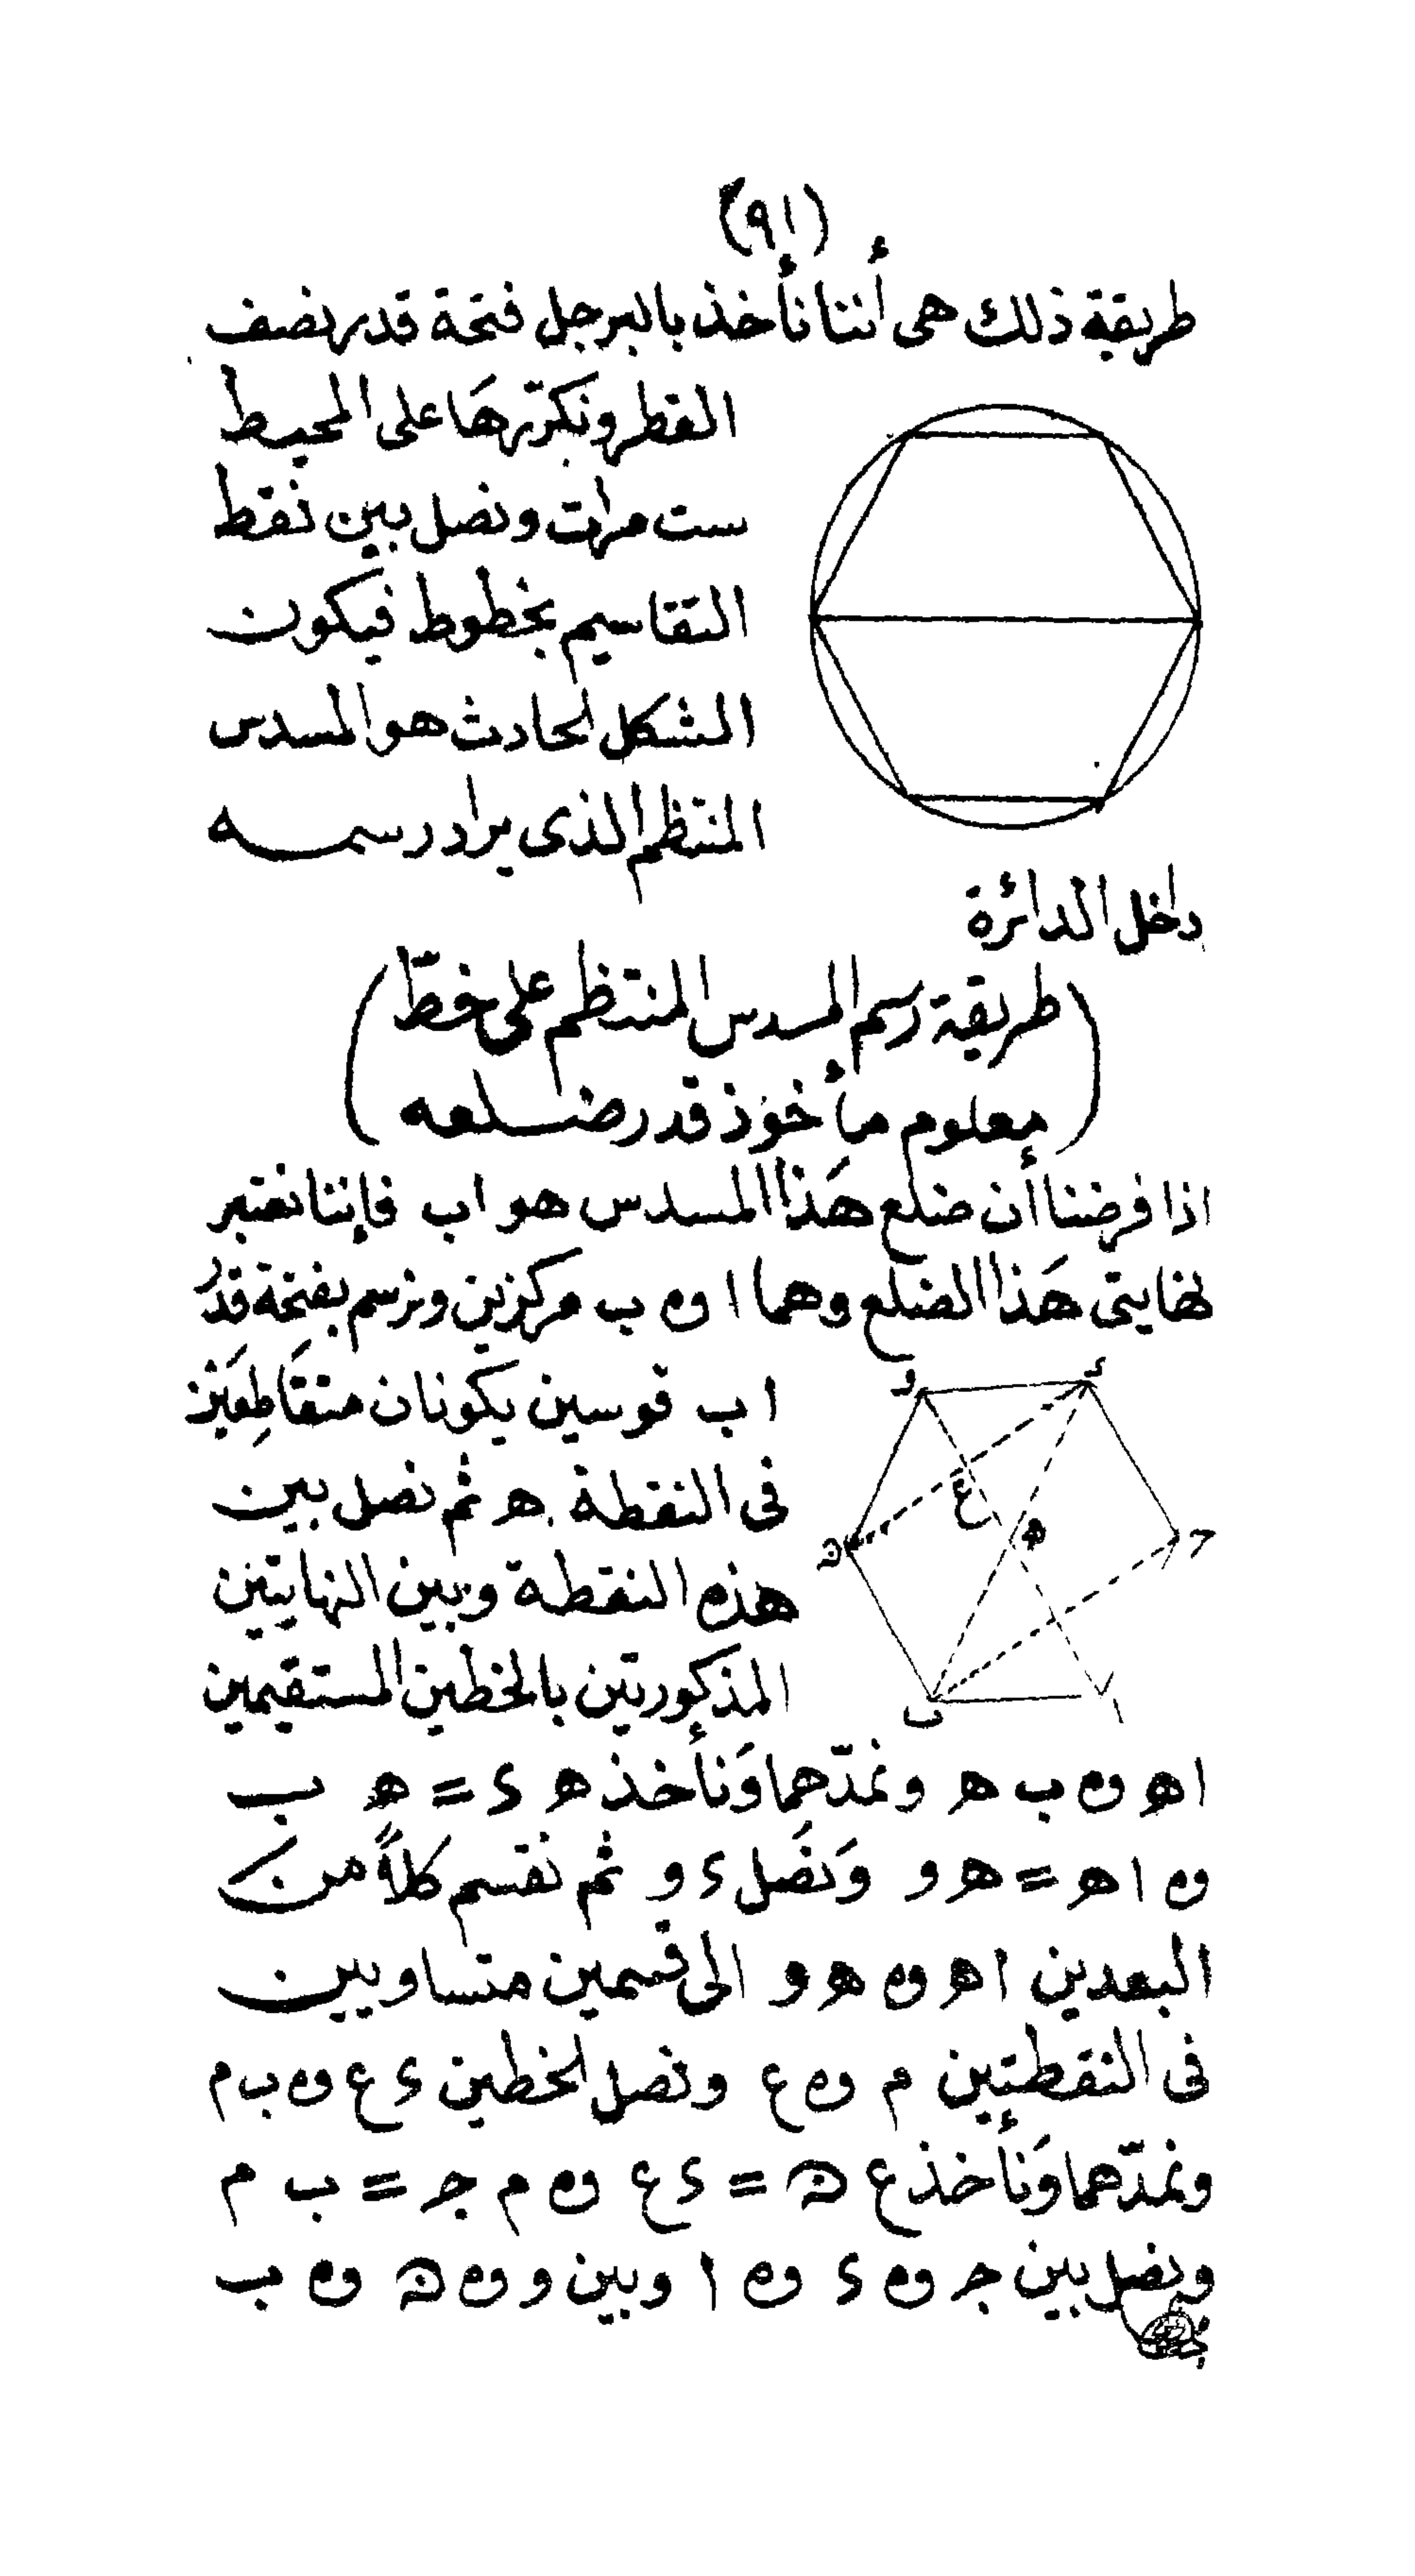 (٩١)
طريقة ذلك هى أننا نأخذ بالبرجل فتحة قدر نصف
القطر ونكررها على المحيط
ست مرات ونصل بين نقط
التقاسيم بخطوط فيكون
الشكل الحادث هو المسدس
المنتظم الذى يراد رسمه
داخل الدائرة
(طريقة رسم المسدس المنتظم على خطّ
معلوم مأخوذ قدر ضلعه)
اذا فرضنا أن ضلع هَذا المسدس هو اب فإننا نعتبر
نهايتى هَذا الضلع وهما ا وه ب مركزين ونرسم بفتحة قدر
اب قوسين يكونان متقَاطِعَيْن
فى النقطة ه ثم نصل بين
هذه النقطة وبين النهايتين
المذكورتين بالخطين المستقيمين
اه وه ب ه ونمدّهما وَنأخذ ه ء = ه ب
وه اه = ه و وَنصَل ء و ثم نقسم كلاً من
البعدين اه وه ه و الى قسمين متساويين
فى النقطتين م وه ع ونصل الخطين ء ع وه ب م
ونمدّهما وَنأخذ ع ن = ء ع وه م ج = ب م
ونصل بين ج وه ء وه ا وبين و وه ن وه ب
و
ء
ع
ه
ن
ح
ب
ا